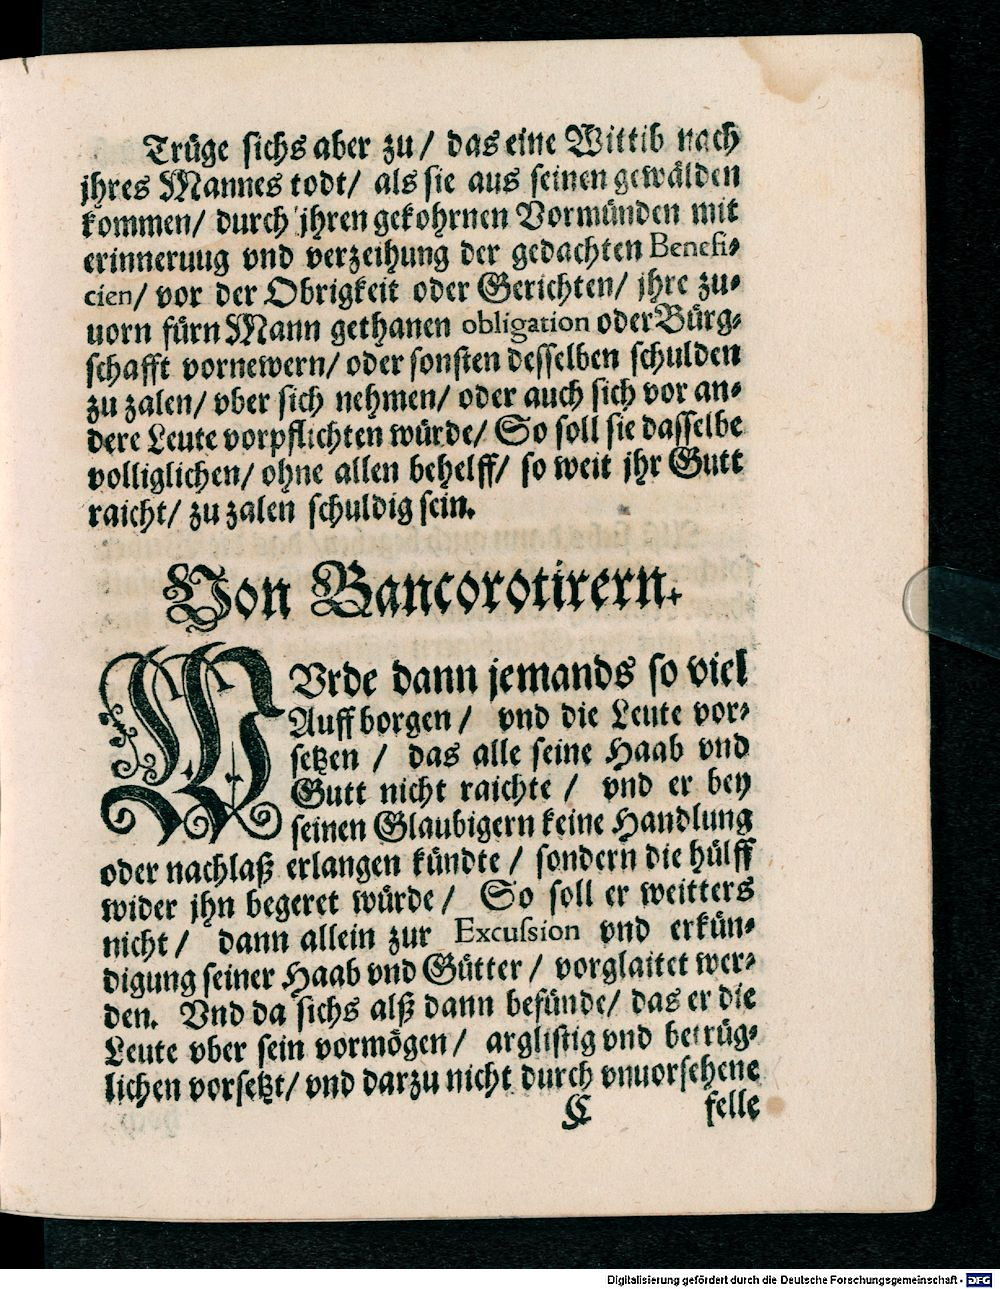 Trüge sichs aber zu/ das eine Wittib nach
jhres Mannes todt/ als sie aus seinen gewälden
kommen/ durch jhren gekohrnen Vormünden mit
erinneruug vnd verzeihung der gedachten Benefi-
cien/ vor der Obrigkeit oder Gerichten/ jhre zu-
uorn fürn Mann gethanen obligation oder Bürg-
schafft vornewern/ oder sonsten desselben schulden
zu zalen/ vber sich nehmen/ oder auch sich vor an-
dere Leute vorpflichten würde/ So soll sie dasselbe
volliglichen/ ohne allen behelff/ so weit jhr Gutt
raicht/ zu zalen schuldig sein.
Von Bancorotirern.
WVrde dann jemands so viel
Auff borgen/ vnd die Leute vor-
setzen/ das alle seine Haab vnd
Gutt nicht raichte/ vnd er bey
seinen Glaubigern keine Handlung
oder nachlaß erlangen kündte/ sondern die hülff
wider jhn begeret würde/ So soll er weitters
nicht/ dann allein zur Excussion vnd erkün-
digung seiner Haab vnd Gütter/ vorglaitet wer-
den. Vnd da sichs alß dann befünde/ das er die
Leute vber sein vormögen/ arglistig vnd betrüg-
lichen vorsetzt/ vnd darzu nicht durch vnuorsehene
C felle
Digitalisierung gefördert durch die Deutsche Forschungsgemeinschaft - DFG